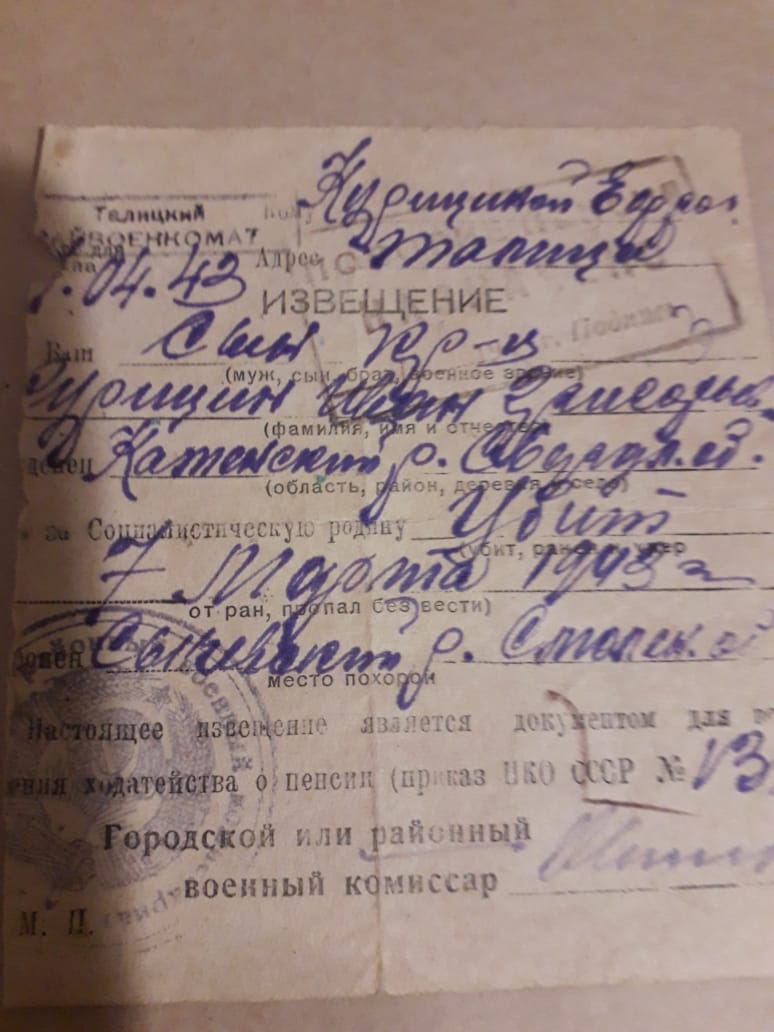 Талицкий
Кому Курициной
АЙВОЕНКОМАТ
Адрес Талица
.04.43
ИЗВЕЩЕНИЕ
Ваш Сын кр-ц
(муж, сын, брат, военное звание)
урицин Иван Григорьев
(фамилия, имя и отчество)
Каменский р. Свердл. об.
(область, район, деревня и село)
за Социалистическую родину Убит
(убит, ранен и умер
7 Марта 1943 г
от ран, пропал без вести)
Сычевский р. Смолской
место похорон
Настоящее извещение является документом для во
ения ходатейства о пенсии (приказ НКО СССР №
Городской или районный
военный комиссар
М. П.